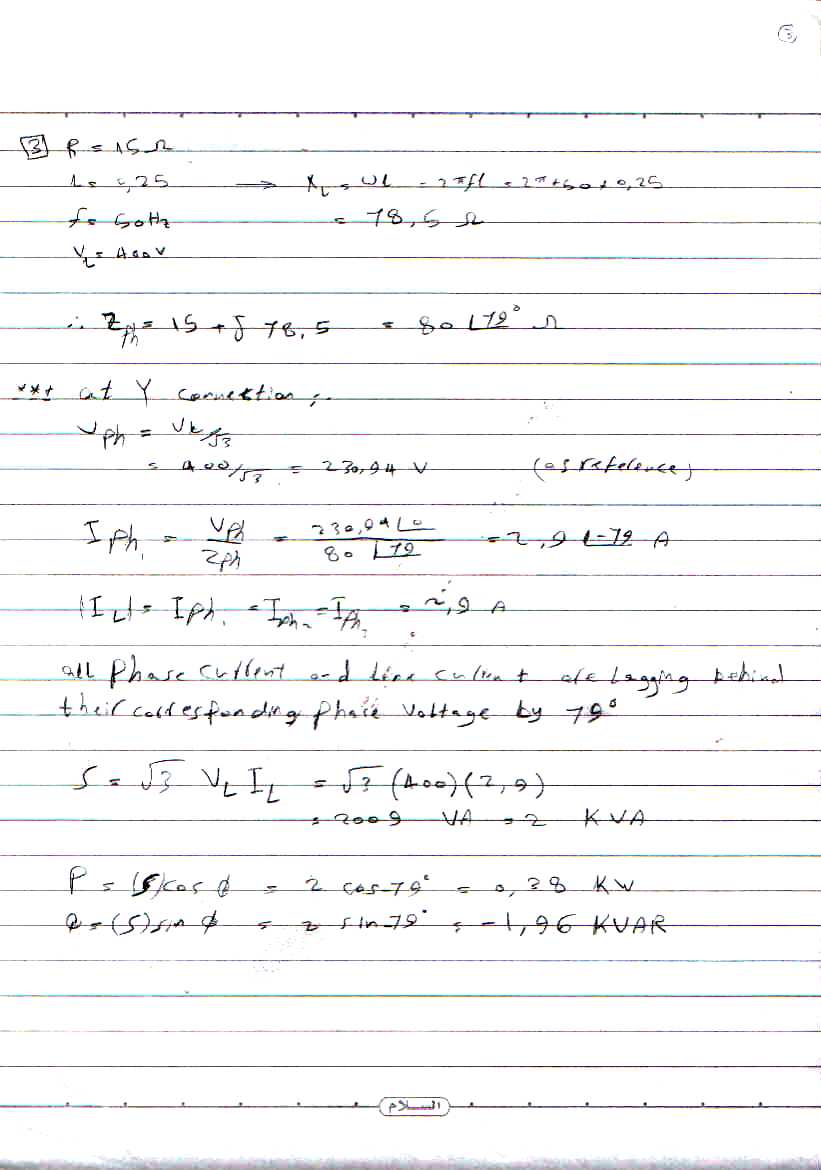 3
3 R = 15 Ω
L = 0,25 → X_L = ωL = 2πfL = 2π*50*0,25
f = 50Hz = 78,5 Ω
V_L = 400V
∴ Z_ph = 15 + J 78,5 = 80 ∠79° Ω
*** at Y connection ;-
V_ph = V_L/√3
= 400/√3 = 230,94 V (as reference)
I_ph₁ = V_ph/Z_ph = 230,94∠0 / 80 ∠79 = 2,9 ∠-79 A
|I_L| = I_ph₁ = I_ph₂ = I_ph₃ = 2,9 A
all Phase current and line current are Lagging behind
their corresponding phase Voltage by 79°
S = √3 V_L I_L = √3 (400)(2,9)
= 2009 VA = 2 KVA
P = (S)cos φ = 2 cos-79° = 0,38 KW
Q = (S)sin φ = 2 sin-79° = -1,96 KVAR
السلام